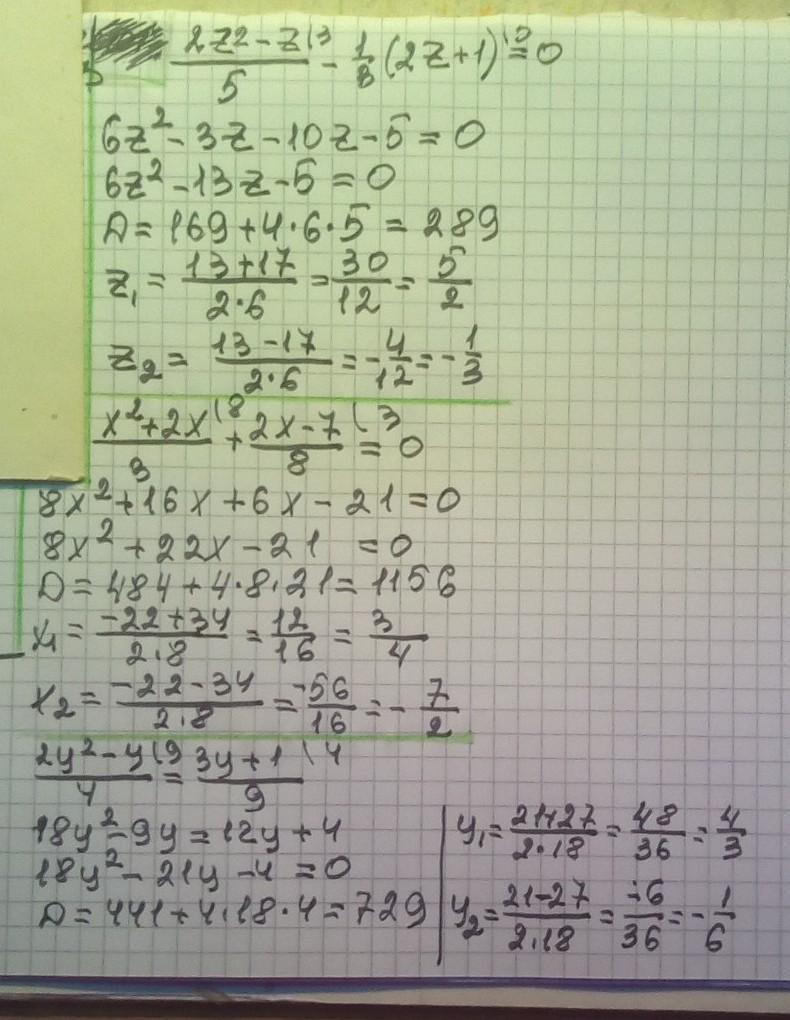 (2z² - z)/5 \3 - 1/3 (2z+1) \5 = 0
6z² - 3z - 10z - 5 = 0
6z² - 13z - 5 = 0
D = 169 + 4·6·5 = 289
z₁ = (13+17)/(2·6) = 30/12 = 5/2
z₂ = (13-17)/(2·6) = -4/12 = -1/3
(x²+2x)/3 \8 + (2x-7)/8 \3 = 0
8x² + 16x + 6x - 21 = 0
8x² + 22x - 21 = 0
D = 484 + 4·8·21 = 1156
x₁ = (-22+34)/(2·8) = 12/16 = 3/4
x₂ = (-22-34)/(2·8) = -56/16 = -7/2
(2y²-y)/4 \9 = (3y+1)/9 \4
18y² - 9y = 12y + 4
18y² - 21y - 4 = 0
D = 441 + 4·18·4 = 729
y₁ = (21+27)/(2·18) = 48/36 = 4/3
y₂ = (21-27)/(2·18) = -6/36 = -1/6